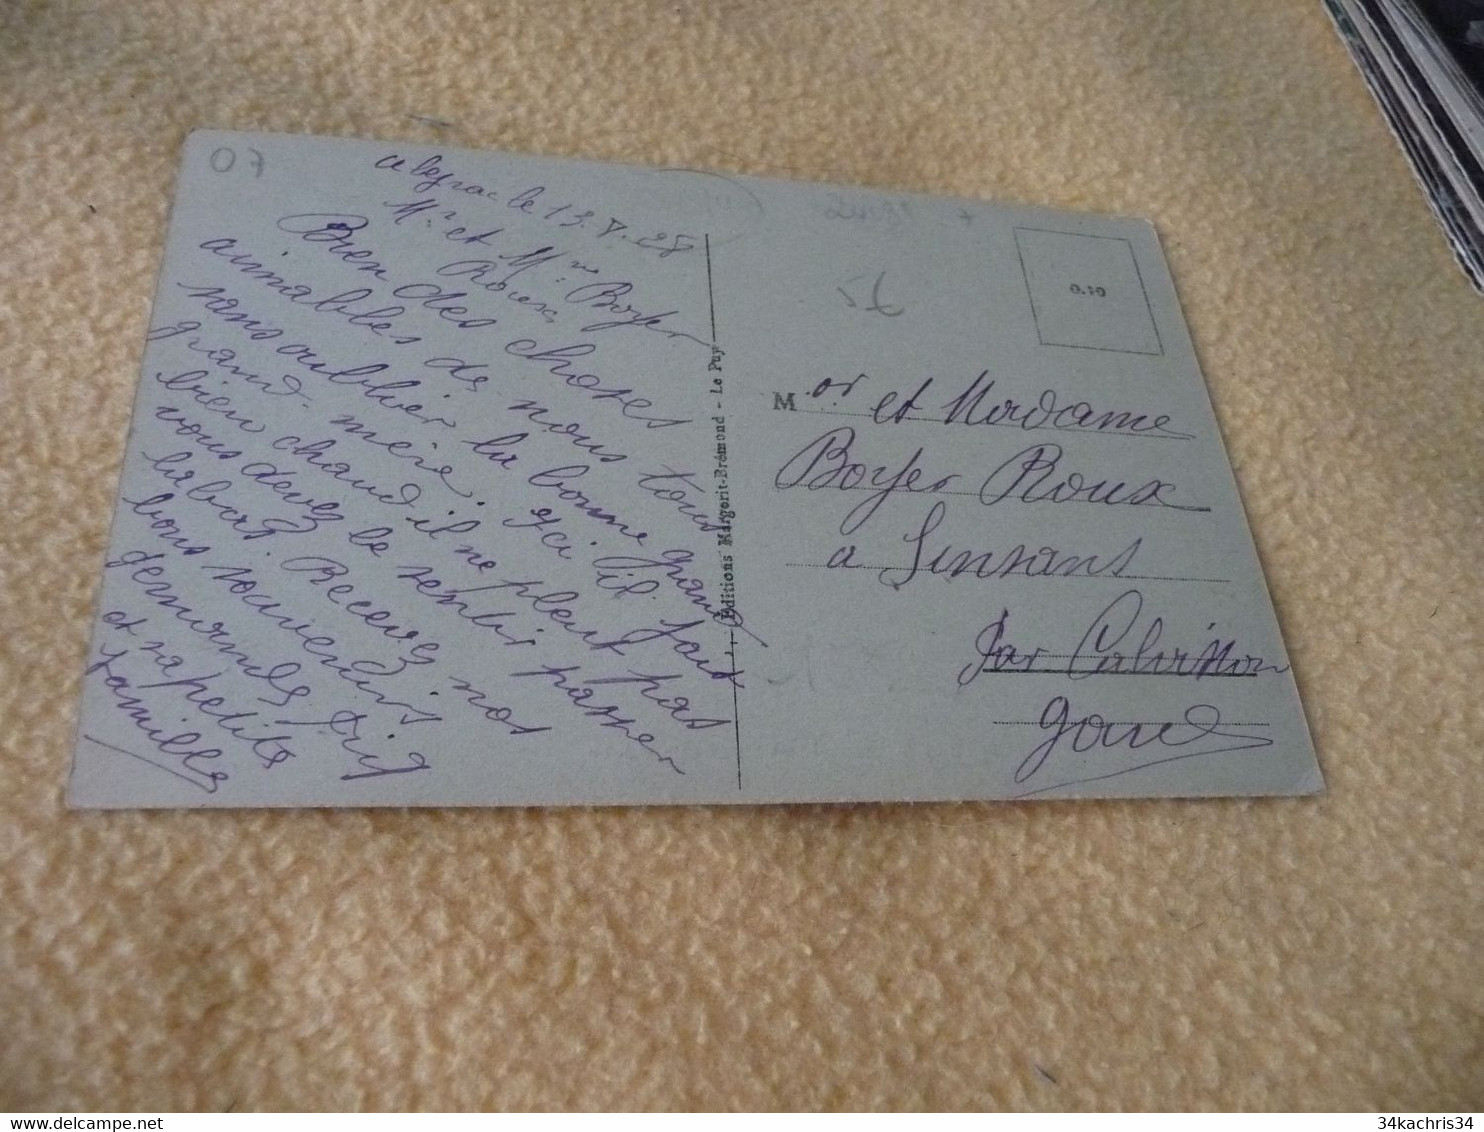 07
alegrac le 13.8.28
Mr et Mme Boyer
Roux
Bien des choses
aimables de nous tous
sans oublier la bonne grand
grand-mère. Ici il fait
bien chaud il ne pleut pas
vous devez le sentir passer
labas. Recevez nos
bons souvenirs
et sa petite
famille
Editions Margerit-Brémond - Le Puy
0.10
75
Mor et Madame
Boyer Roux
a Sinsans
par Calvisson
Gard
34kachris34